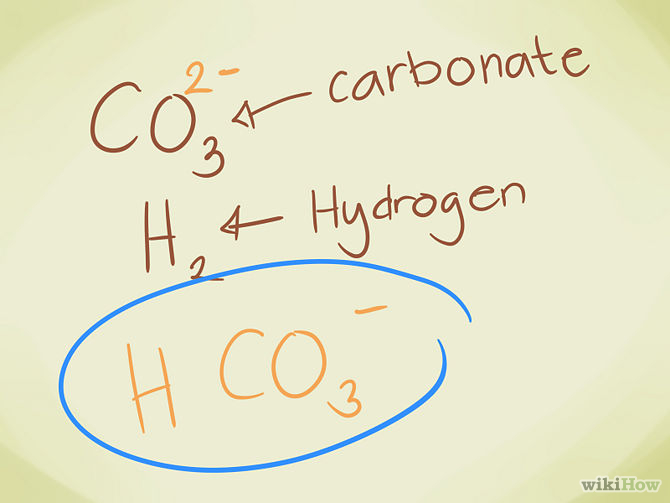 CO₃²⁻ carbonate
H₂ Hydrogen
H CO₃⁻
wikiHow